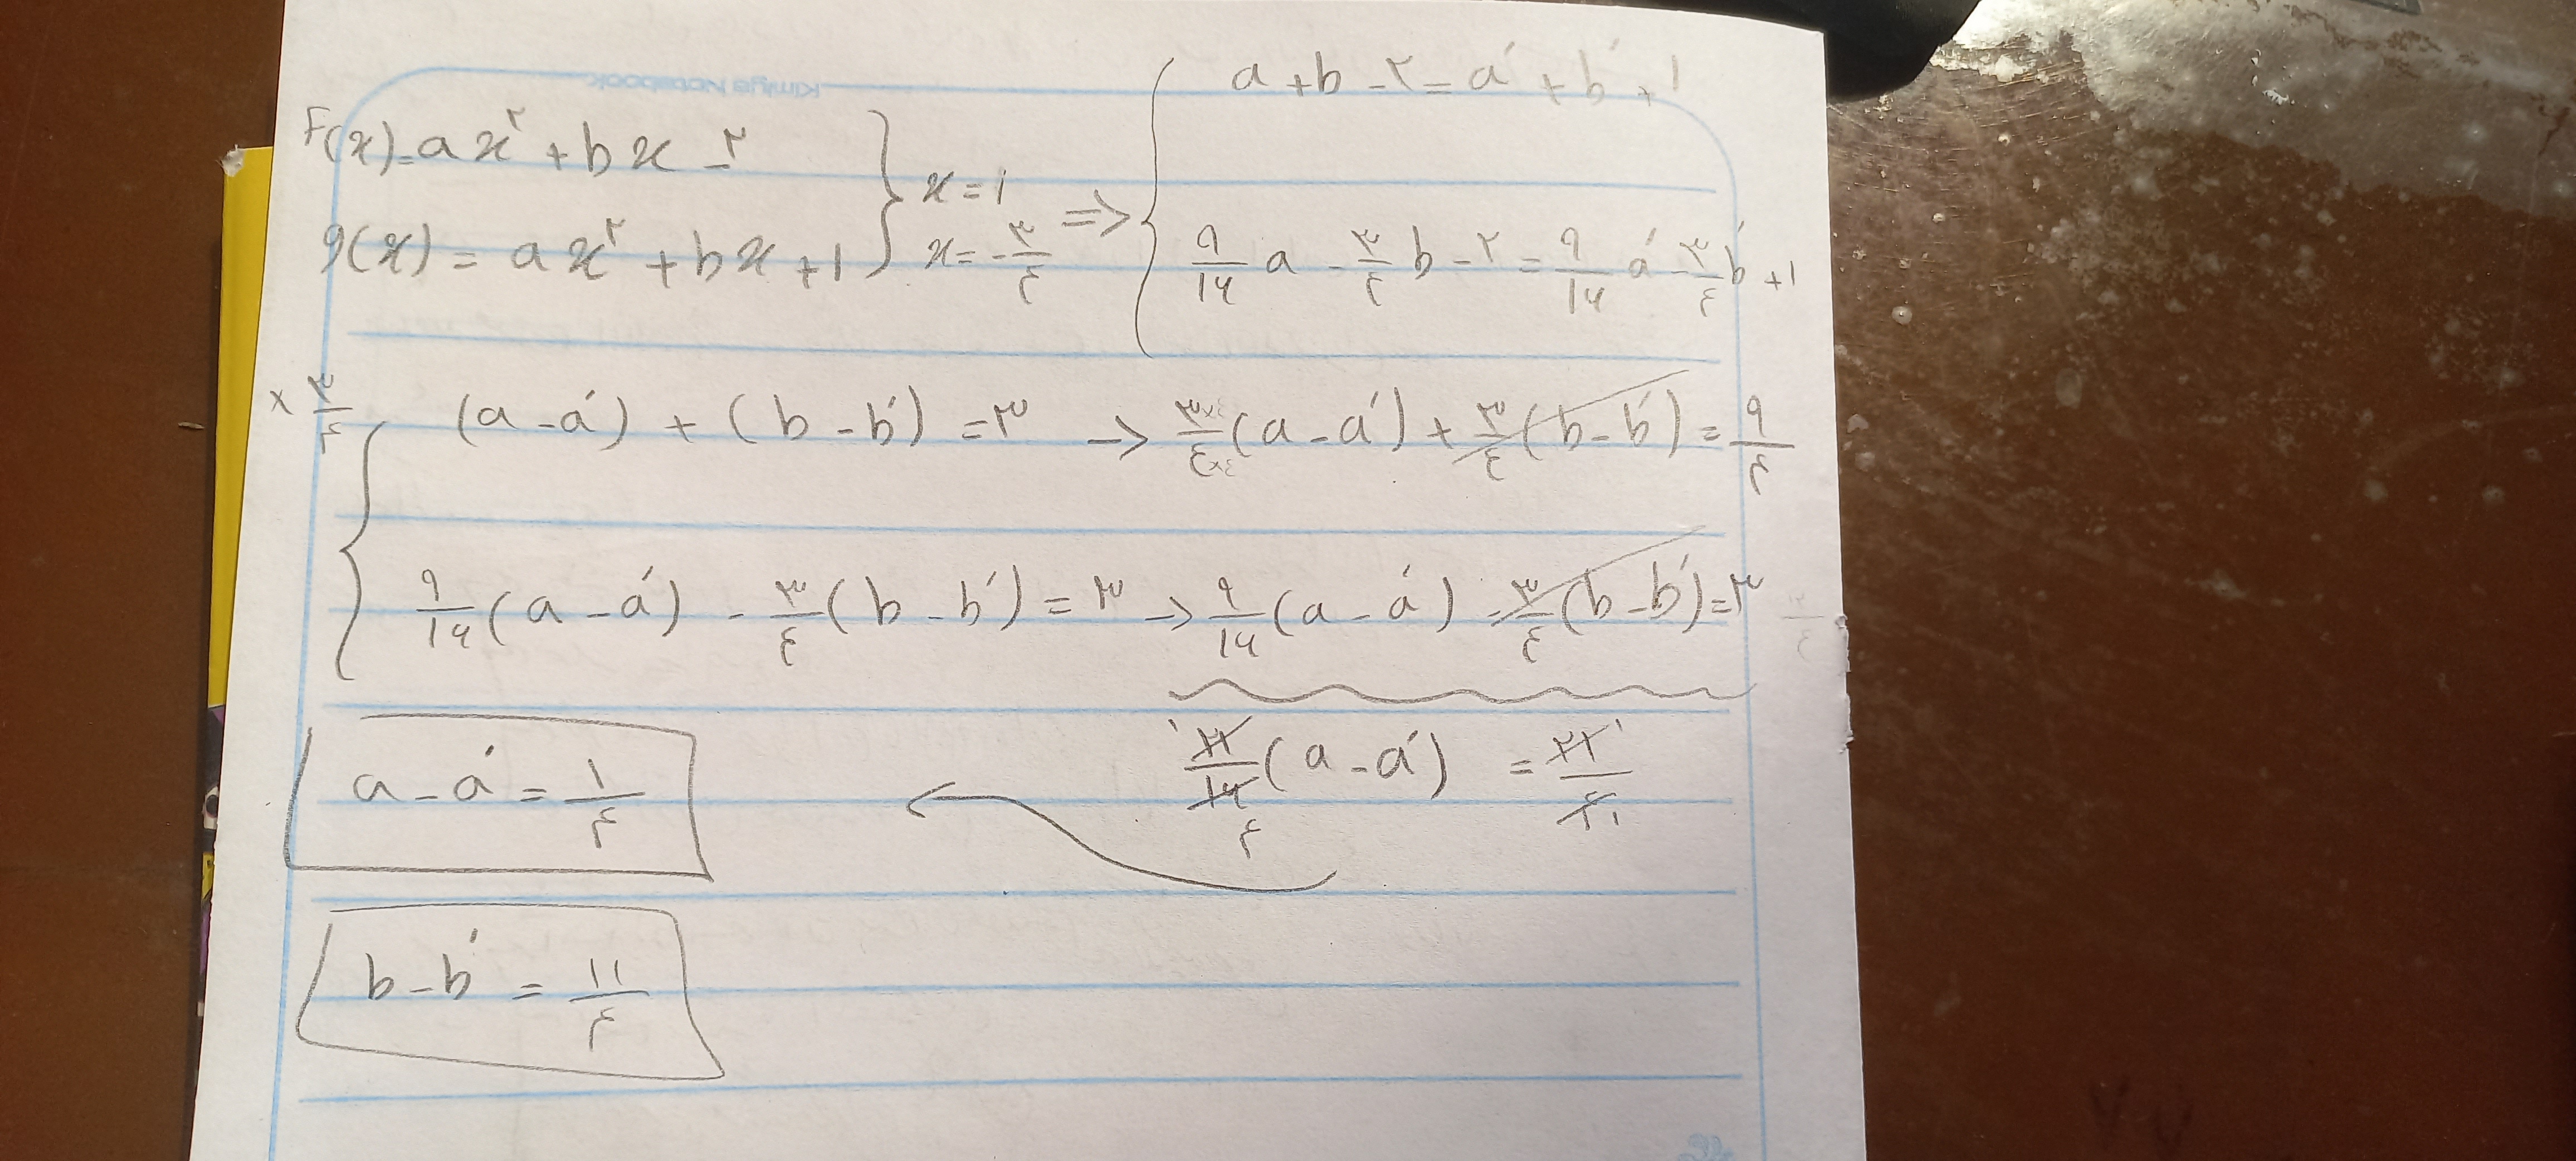 Kimiya Notebook
F(x)=ax^۲+bx-۲
g(x)=ax^۲+bx+۱
x=۱
x=-۳/۴
=>
a+b-۲=a'+b'+۱
۹/۱۶ a - ۳/۴ b - ۲ = ۹/۱۶ a' - ۳/۴ b' + ۱
×۳/۴ (a-a')+(b-b')=۳ → ۳×۴/۴×۴ (a-a') + ۳/۴ (b-b') = ۹/۴
۹/۱۶ (a-a') - ۳/۴ (b-b') = ۳ → ۹/۱۶ (a-a') - ۳/۴ (b-b') = ۳
۲۱/۱۶ (a-a') = ۲۱/۴
۱ ۴ ۱ ۱
a-a' = ۱/۴
b-b' = ۱۱/۴